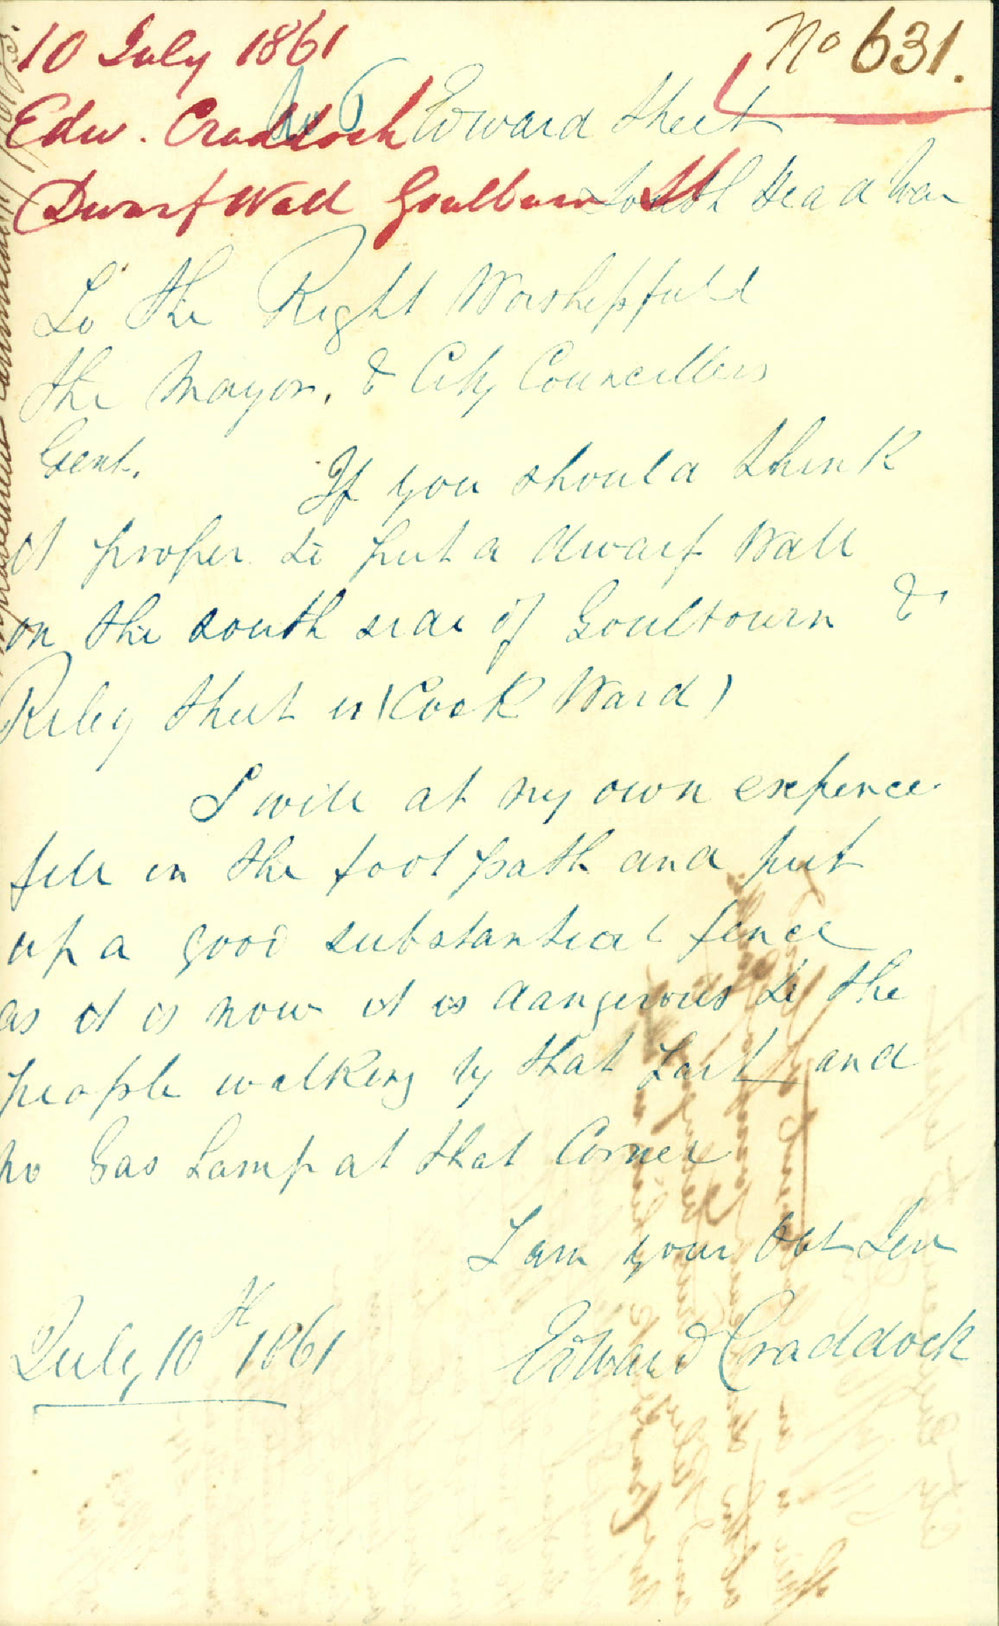 10 July 1861
No 631.
Edw. Craddock
No 6 Edward Street
Dwarf Wall Goulburn St
South Head
To the Right Worshipfull
the Mayor, & City Councillers
Gent.
If you should think
it proper to put a dwarf Wall
on the south side of Goulbourn &
Riley Street in (Cook Ward)
I will at my own expence
fill in the foot path and put
up a good substantial fence
as it is now it is dangerous to the
people walking by that Part and
no Gas Lamp at that Corner
I am your Obt Serv
July 10th 1861
Edward Craddock